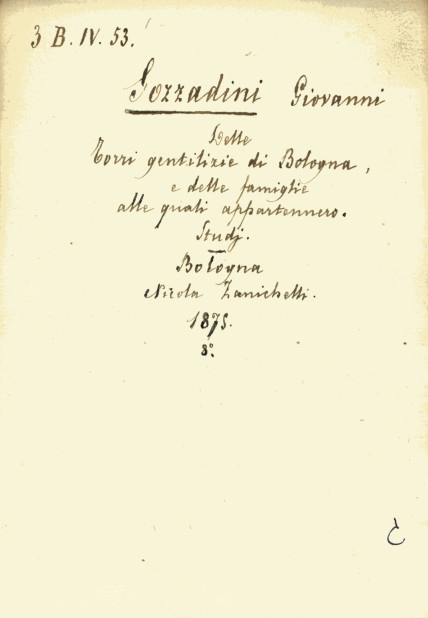 3 B. IV. 53.
Gozzadini Giovanni
Delle
Torri gentilizie di Bologna,
e delle famiglie
alle quali appartennero.
Studj.
Bologna
Nicola Zanichelli.
1875.
8°.